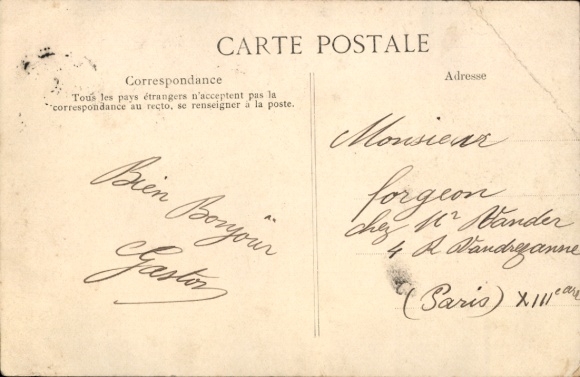 CARTE POSTALE
Correspondance
Tous les pays étrangers n'acceptent pas la
correspondance au recto, se renseigner à la poste.
Adresse
Bien Bonjour
Gaston
Monsieur
forgeon
chez Mr Vander
4 R Vandrezanne
(Paris) XIIIe arr